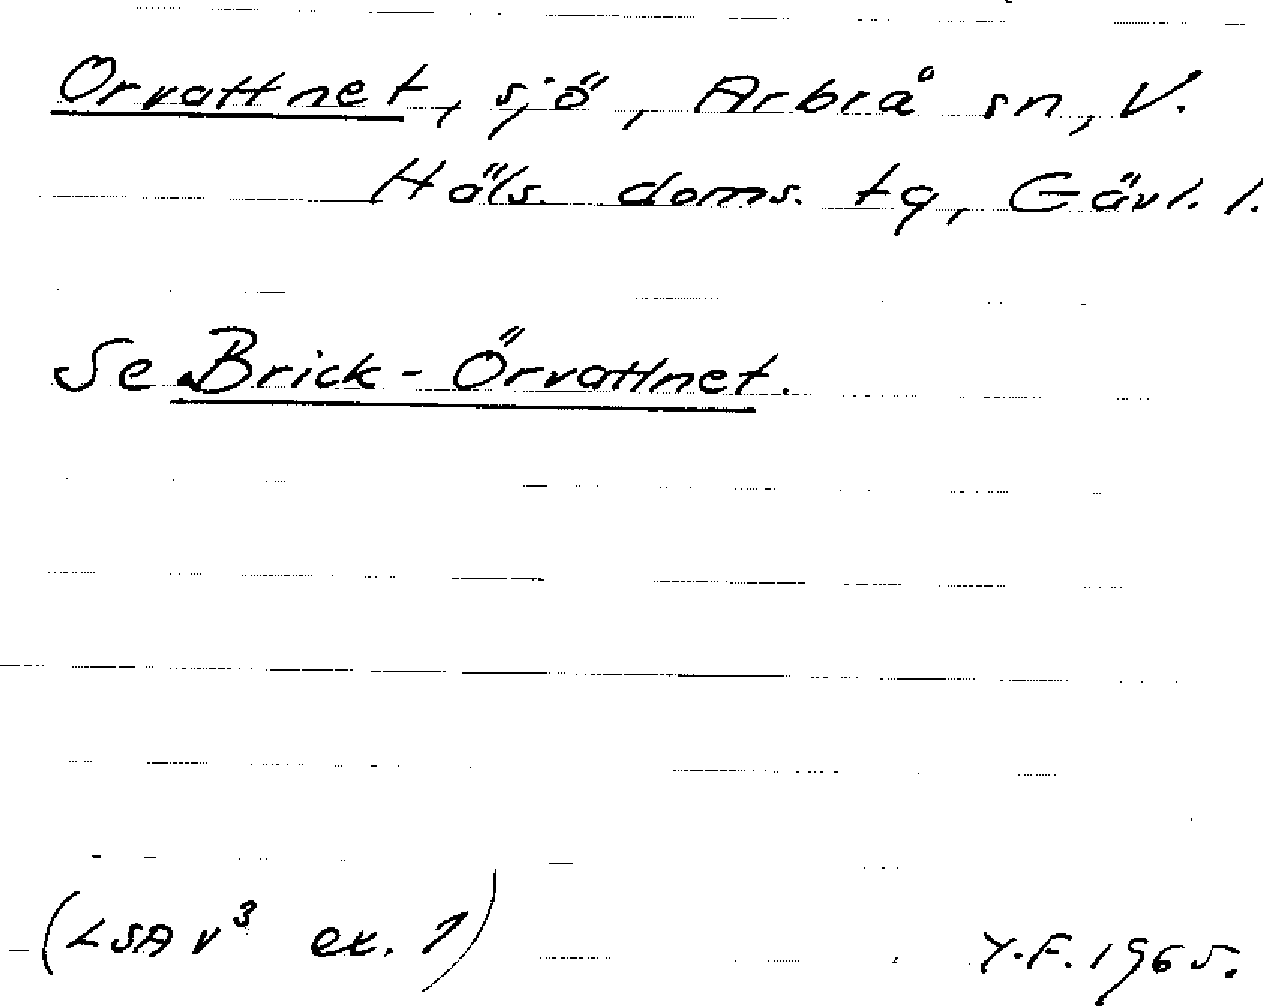 Orvattnet, sjö, Arbrå sn, V.
Häls. doms. tg, Gävl. l.
Se Brick-Örvattnet.
(LSA v³ ex. 1)
Y.F. 1965.